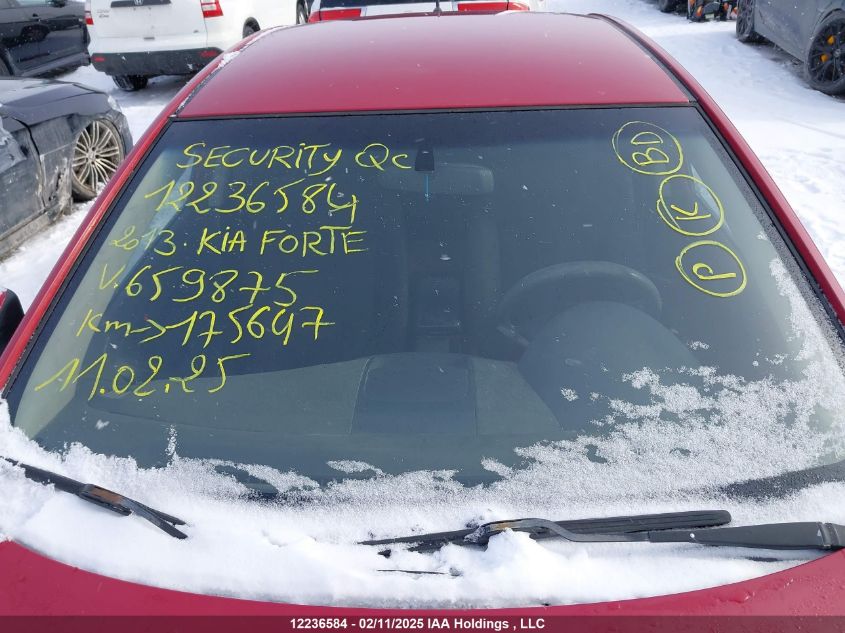 SECURITY QC
12236584
2013. KIA FORTE
V.659875
Km->175647
11.02.25
BD
K
P
12236584 - 02/11/2025 IAA Holdings, LLC